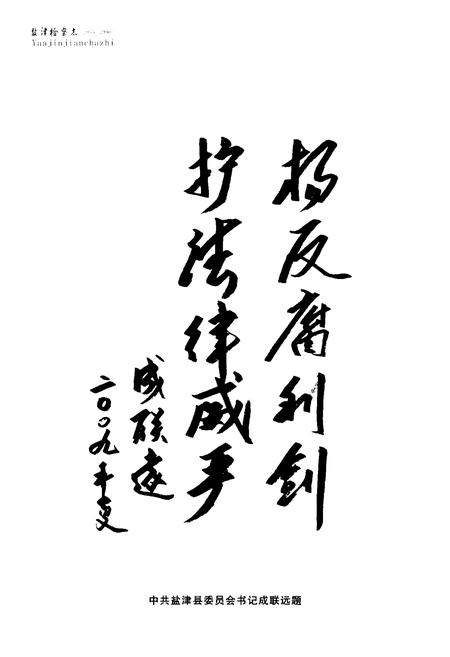 盐津检察志
Yanjinjianchazhi
扬反腐利剑
护法律威严
成联远
二〇〇九年夏
中共盐津县委员会书记成联远题